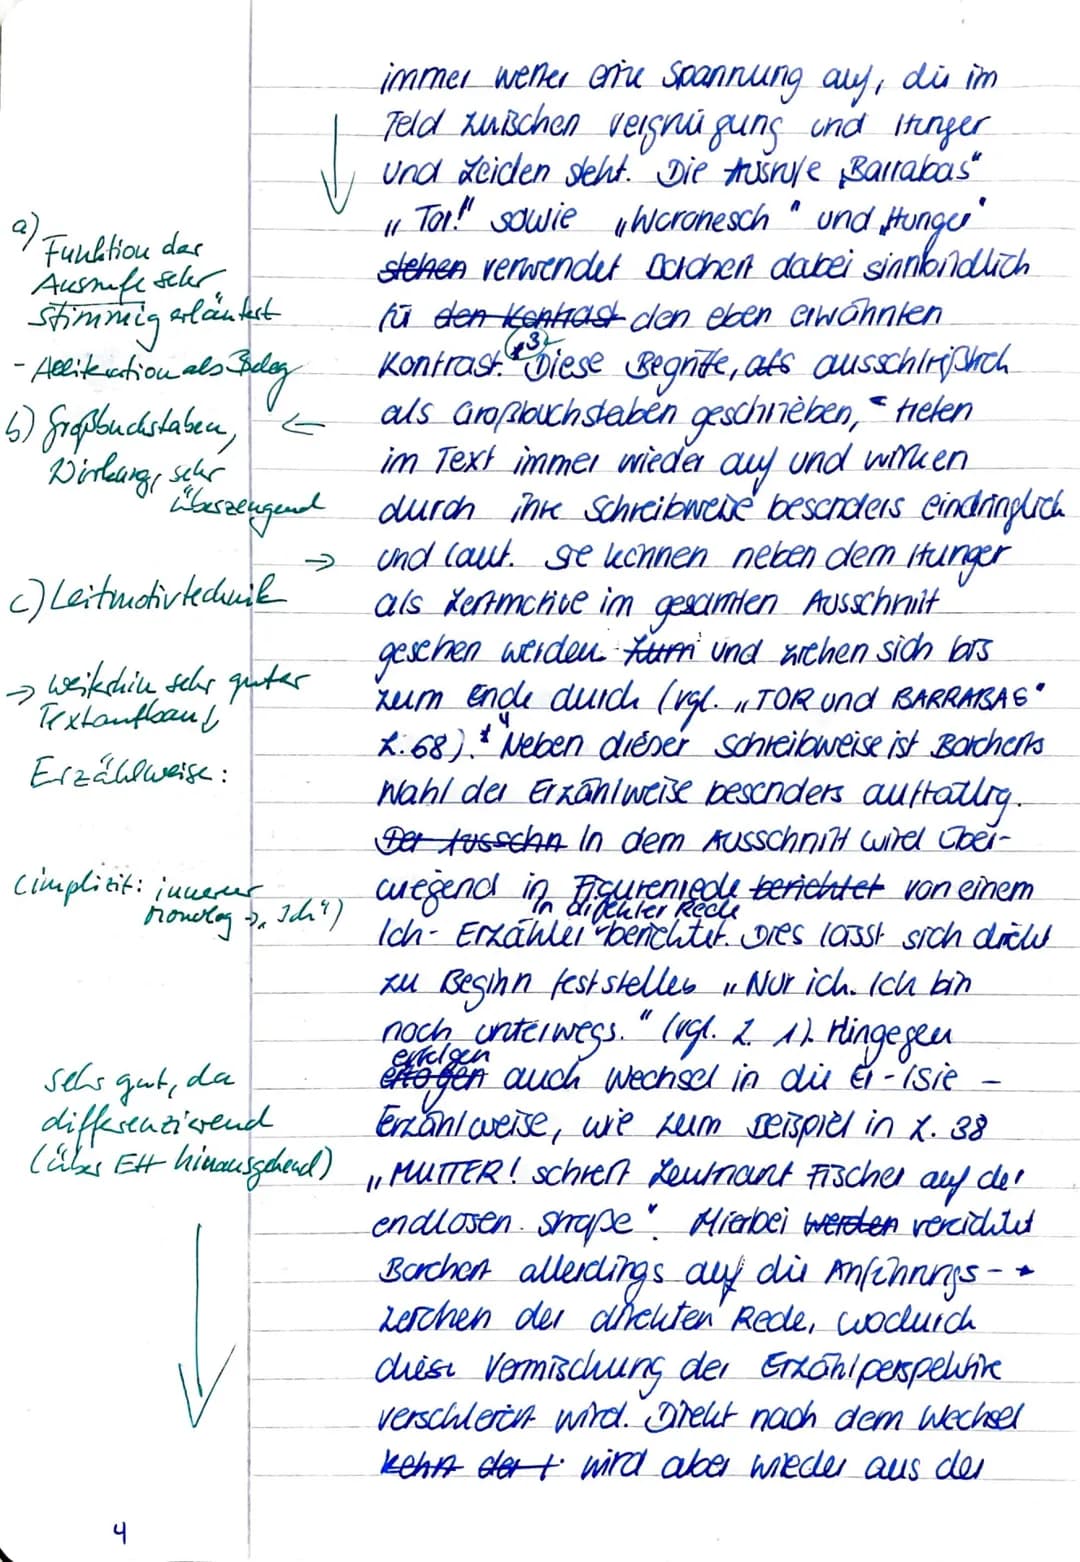 immer weiter eine Spannung auf, die im
Feld zwischen Vergnügung und Hunger
und Leiden steht. Die Ausrufe „Barrabas"
„Tor!" sowie „Woronesch" und „Hunger"
a) Funktion der
Ausrufe sehr
stimmig erläutert
stehen verwendet Borchert dabei sinnbildlich
für den Kontrast den eben erwähnten
- Alliteration als Beleg
Kontrast. *3 Diese Begriffe, als ausschließlich
b) Großbuchstaben,
Wirkung, sehr
überzeugend
als Großbuchstaben geschrieben, treten
im Text immer wieder auf und wirken
durch ihre Schreibweise besonders eindringlich
und laut. Sie können neben dem Hunger
c) Leitmotivtechnik
als Leitmotive im gesamten Ausschnitt
gesehen werden. Zum und ziehen sich bis
→ weiterhin sehr guter
Textaufbau
zum Ende durch (vgl. „TOR und BARRABAS"
Z. 68). *4 Neben dieser Schreibweise ist Borcherts
Erzählweise:
Wahl der Erzählweise besonders auffällig.
Der Ausschn In dem Ausschnitt wird über-
(implizit: innerer
Monolog → „Ich")
wiegend in Figurenrede berichtet von einem
in direkter Rede
Ich-Erzähler berichtet. Dies lässt sich direkt
zu Beginn feststellen „Nur ich. Ich bin
noch unterwegs." (vgl. Z. 1). Hingegen
erfolgen
sehr gut, da
differenzierend
(über EH hinausgehend)
erfogen auch Wechsel in die Er-/Sie-
Erzählweise, wie zum Beispiel in Z. 38
„MUTTER! schreit Leutnant Fischer auf der
endlosen Straße". Hierbei werden verzichtet
Borchert allerdings auf die Anführungs-
zeichen der direkten Rede, wodurch
diese Vermischung der Erzählperspektive
verschleiert wird. Direkt nach dem Wechsel
kehrt der t. wird aber wieder aus der
4